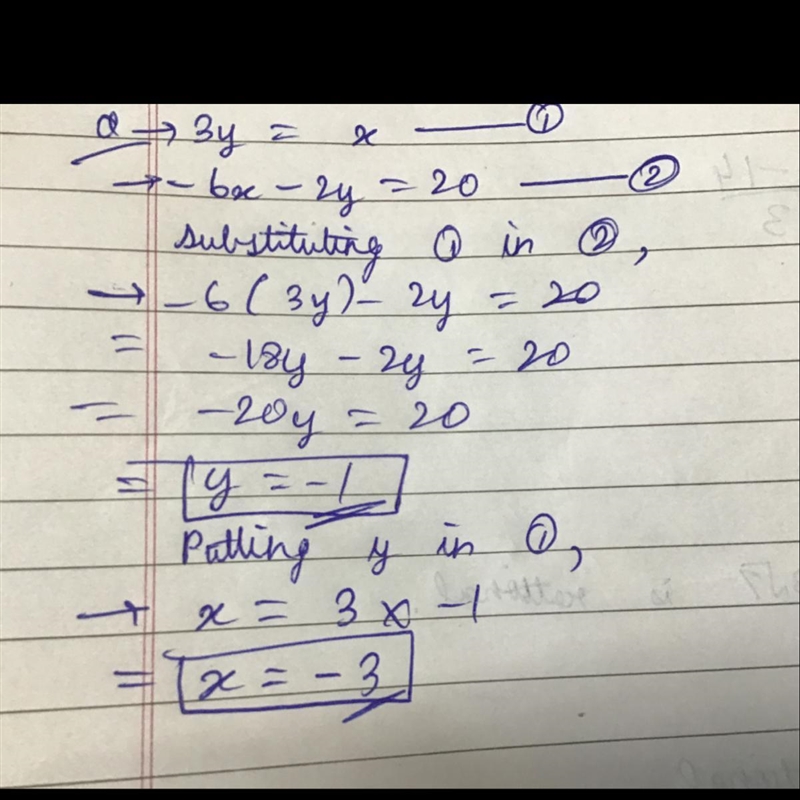 Q → 3y = x —— ①
→ -6x - 2y = 20 —— ②
substituting ① in ②,
→ -6(3y) - 2y = 20
= -18y - 2y = 20
= -20y = 20
= y = -1
Putting y in ①,
→ x = 3 x -1
= x = -3